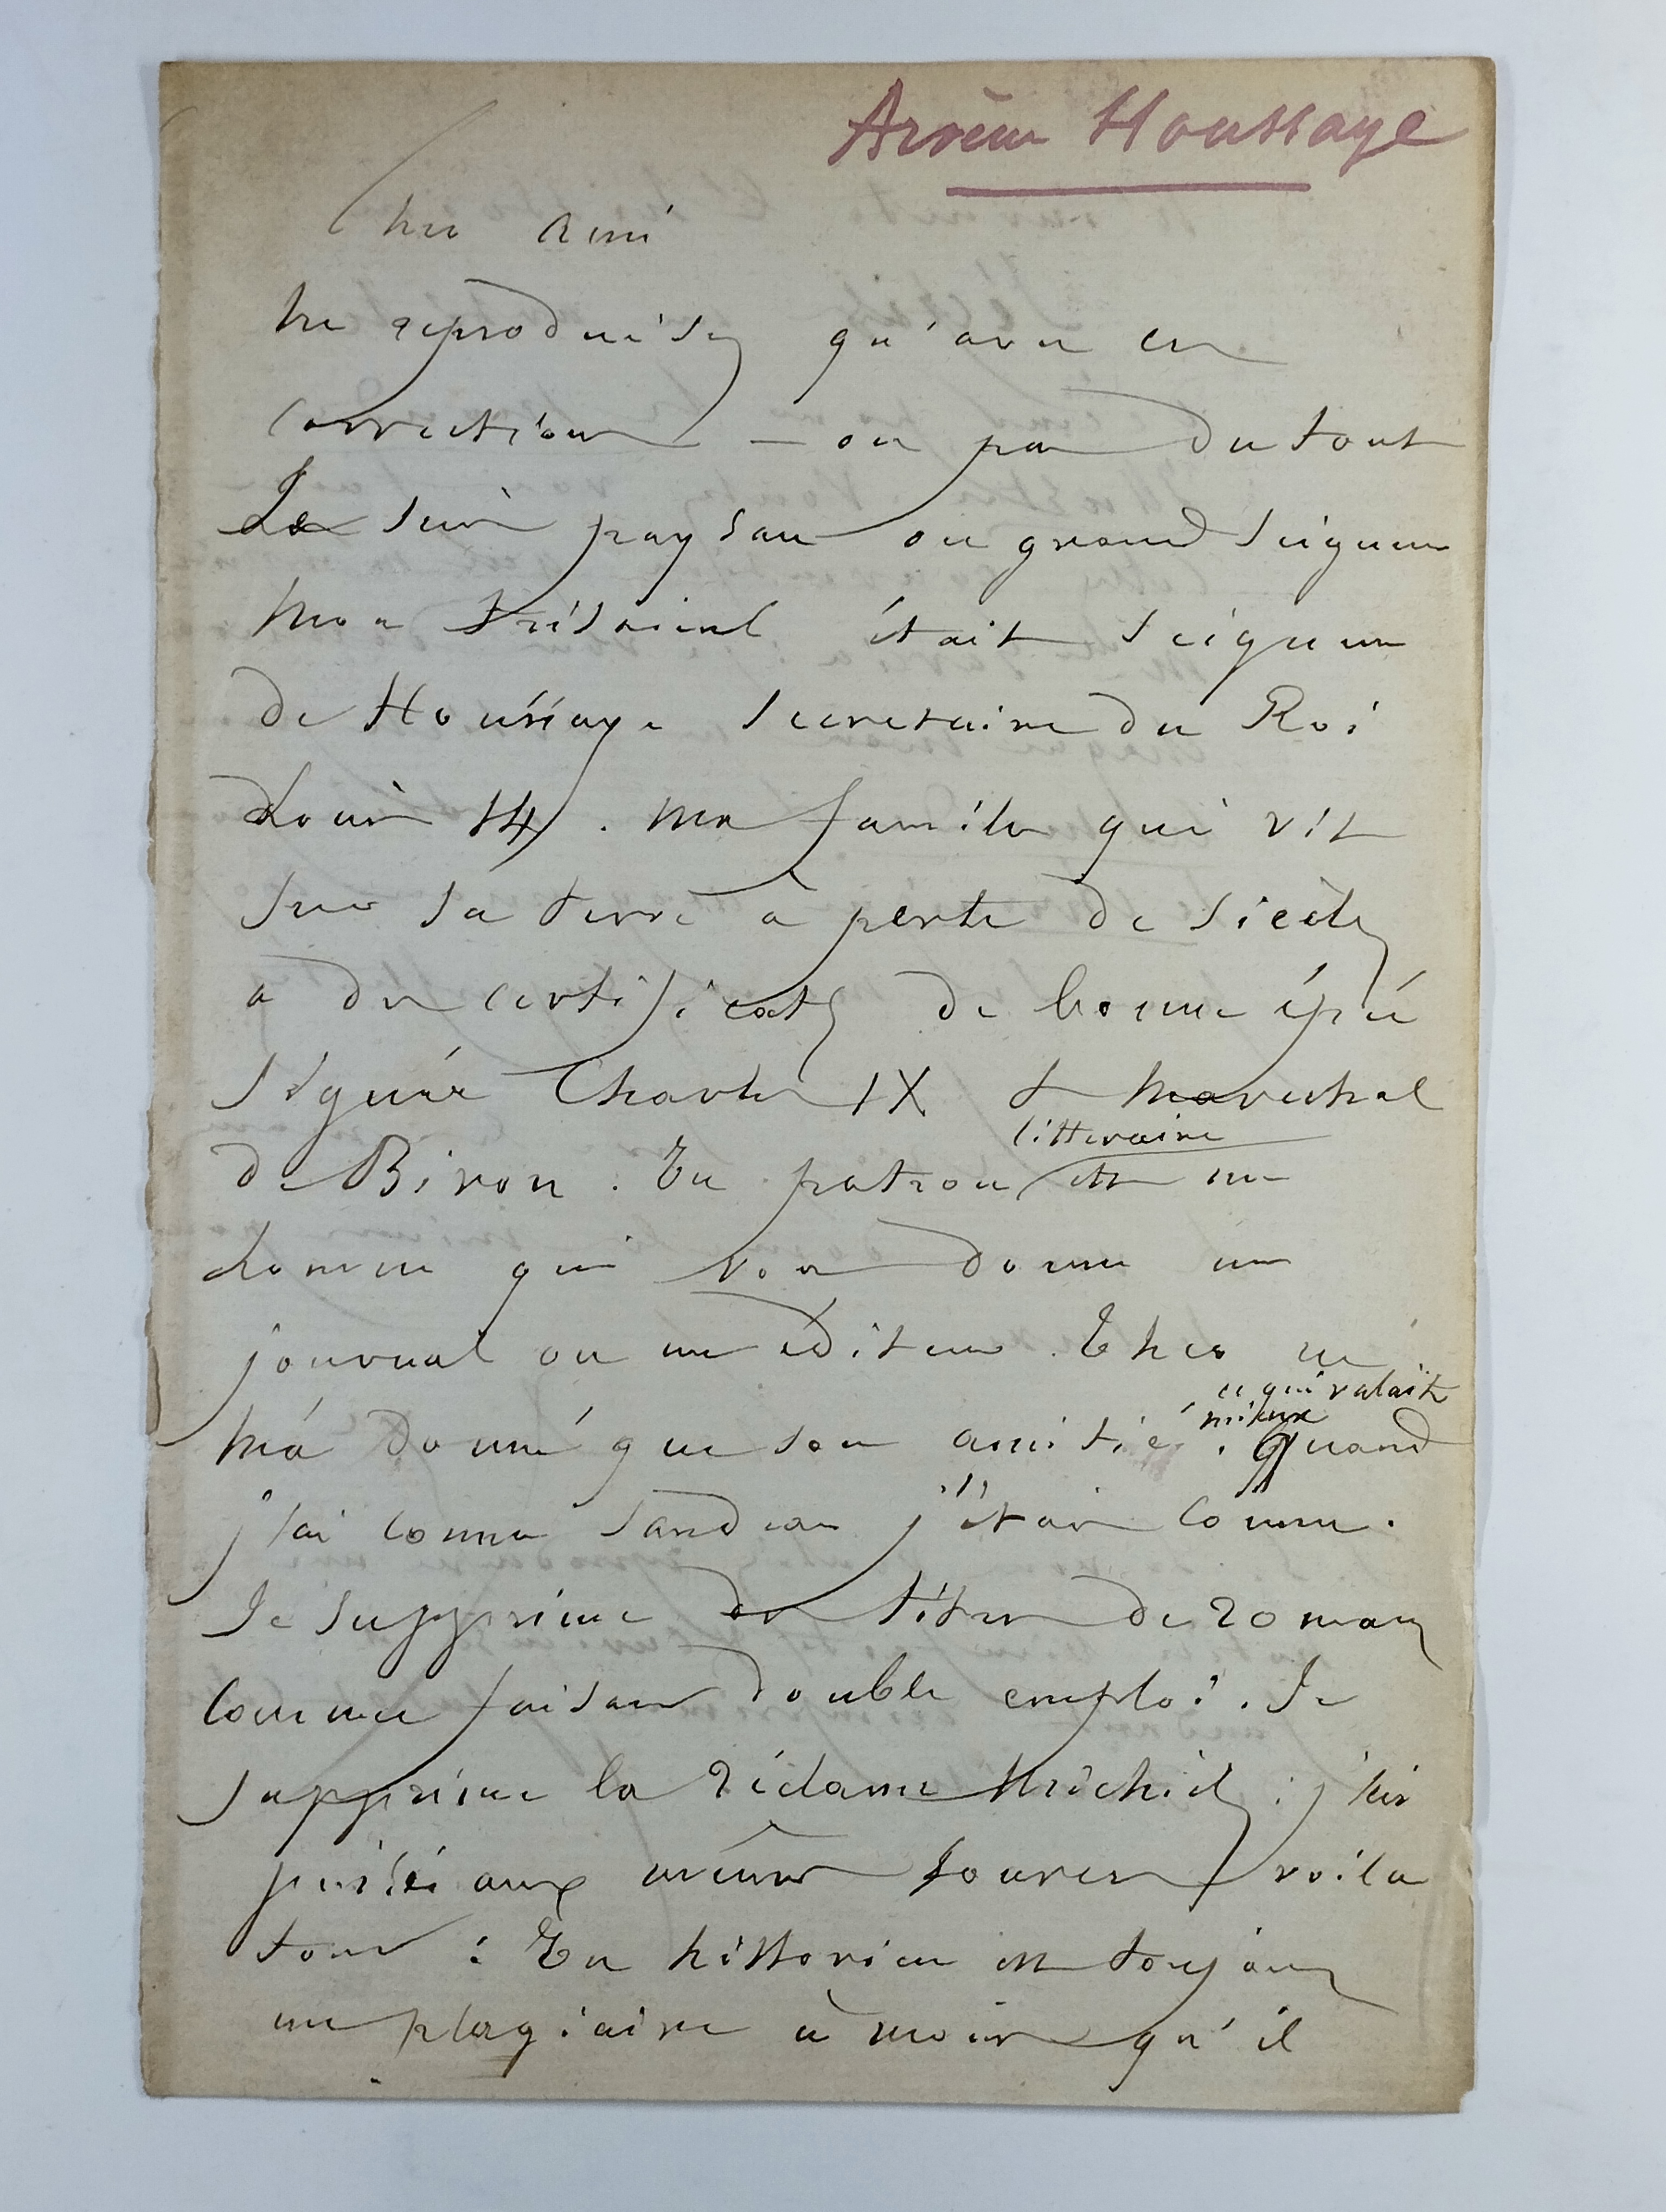 Arsène Houssaye
Cher ami
Ne reproduisez qu'avec ces
corrections — ou pas du tout
Je suis paysan ou grand seigneur
Mon trisaieul était seigneur
de Houssaye secretaire du Roi
Louis 14. Ma famille qui vit
sur sa terre à perte de siècles
a des certificats de bonne épée
signés Charles IX & Marechal
de Biron. Un patron litteraire est un
homme qui vous donne un
journal ou un éditeur. Théo ne
m'a donné que son amitié, ce qui valait
mieux. Quand
j'ai connu Sandeau j'étais connu.
Je supprime des titres de romans
comme faisant double emploi. Je
supprime la réclame Michiels : j'ai
puisé aux mêmes sources voila
tout : Un historien est toujours
un plagiaire à moins qu'il